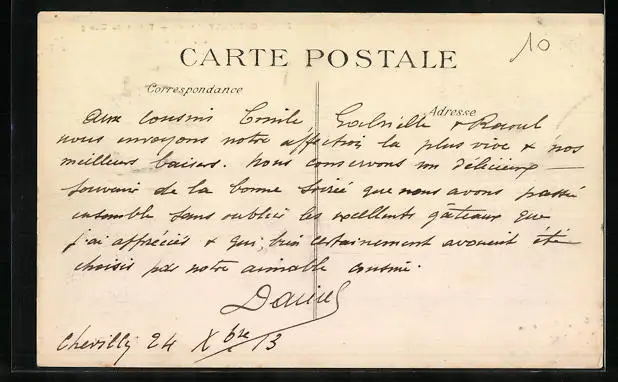 10
CARTE POSTALE
Correspondance
Adresse
Aux cousins Emile Gabrielle & Raoul
nous envoyons notre affection la plus vive & nos
meilleurs baisers. Nous conservons un délicieux
souvenir de la bonne soirée que nous avons passé
ensemble sans oublier les excellents gâteaux que
j'ai appréciés & qui, bien certainement avaient été
choisis par notre aimable cousine.
Chevilly 24 Xbre 13